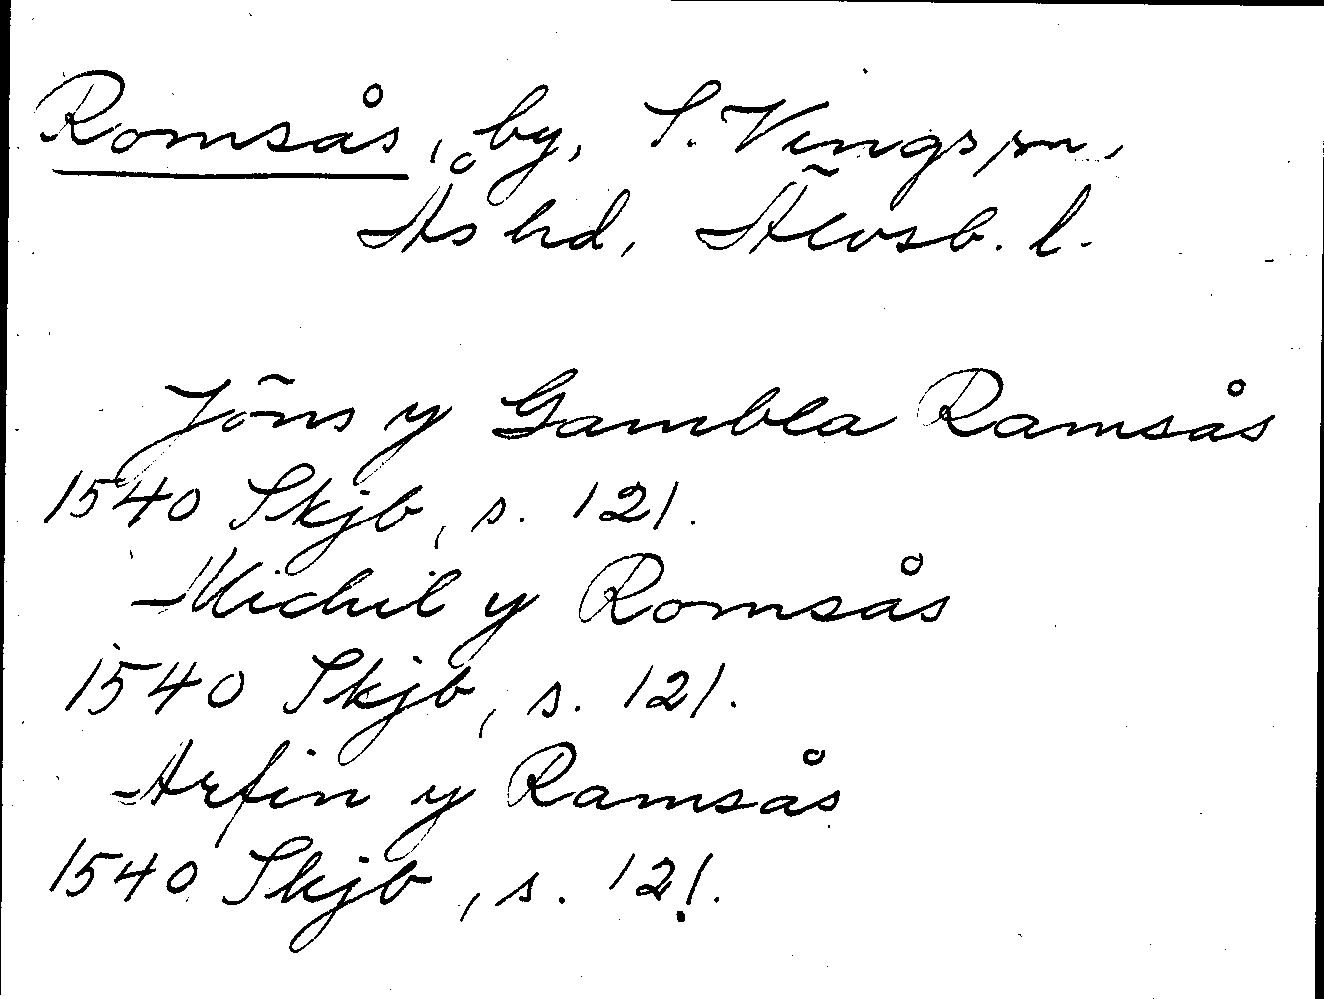 Romsås, by, S. Vings sn,
Ås hd, Älvsb. l.
Jöns y Gambla Ramsås
1540 Skjb, s. 121.
Michil y Romsås
1540 Skjb, s. 121.
Arfin y Ramsås
1540 Skjb, s. 121.